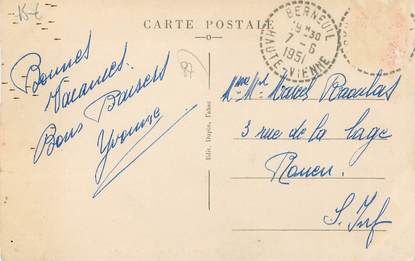 15€
CARTE POSTALE
BERNEUIL
9 H 30
7-6
1951
HAUTE-VIENNE
87
Bonnes
Vacances.
Bons Baisers
Yvonne
Edit. Dupin, Fabac
Mme Mr Marcel Raoulas
3 rue de la Cage
Rouen
S. Inf